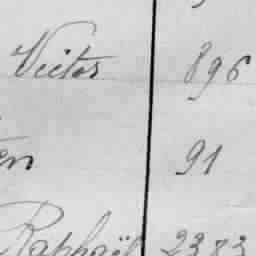 Victor 896
en 91
Raphaël 2383